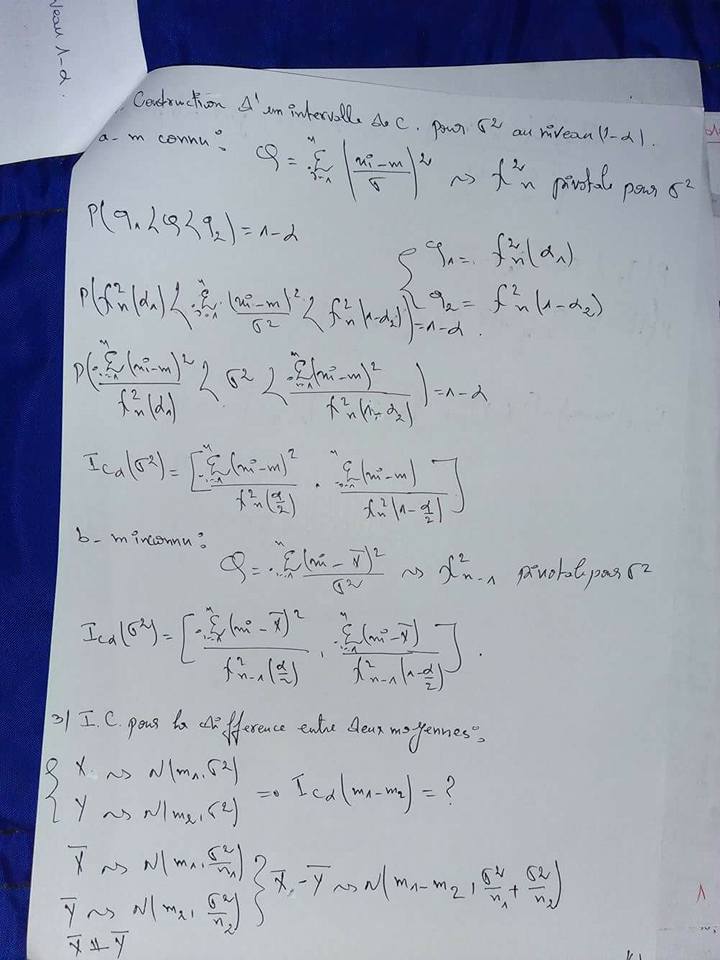 veau 1-α.
Construction d'un intervalle de C. pour σ² au niveau (1-α).
a- m connu : Q = Σ_{i=1}^{n} ((xi-m)/σ)² ~> χ²_n pivotale pour σ²
P(q1 < Q < q2) = 1-α
{ q1 = χ²_n(α1)
q2 = χ²_n(1-α2)
P(χ²_n(α1) < Σ_{i=1}^{n} (xi-m)²/σ² < χ²_n(1-α2)) = 1-α.
P(Σ_{i=1}^{n} (xi-m)² / χ²_n(α1) < σ² < Σ_{i=1}^{n} (xi-m)² / χ²_n(1-α2)) = 1-α
I_Cα(σ²) = [Σ_{i=1}^{n} (xi-m)² / χ²_n(α/2) , Σ_{i=1}^{n} (xi-m) / χ²_n(1-α/2)]
b- m inconnu :
Q = Σ_{i=1}^{n} (xi - X̄)²/σ² ~> χ²_{n-1} pivotale pour σ²
I_Cα(σ²) = [Σ_{i=1}^{n} (xi - X̄)² / χ²_{n-1}(α/2) , Σ_{i=1}^{n} (xi - X̄) / χ²_{n-1}(1-α/2)].
3/ I.C. pour la difference entre deux moyennes :
{ X ~> N(m1, σ²)
Y ~> N(m2, σ²) => I_Cα(m1-m2) = ?
X̄ ~> N(m1, σ²/n1)
Ȳ ~> N(m2, σ²/n2) } X̄ - Ȳ ~> N(m1-m2, σ²/n1 + σ²/n2)
X̄ ⫫ Ȳ